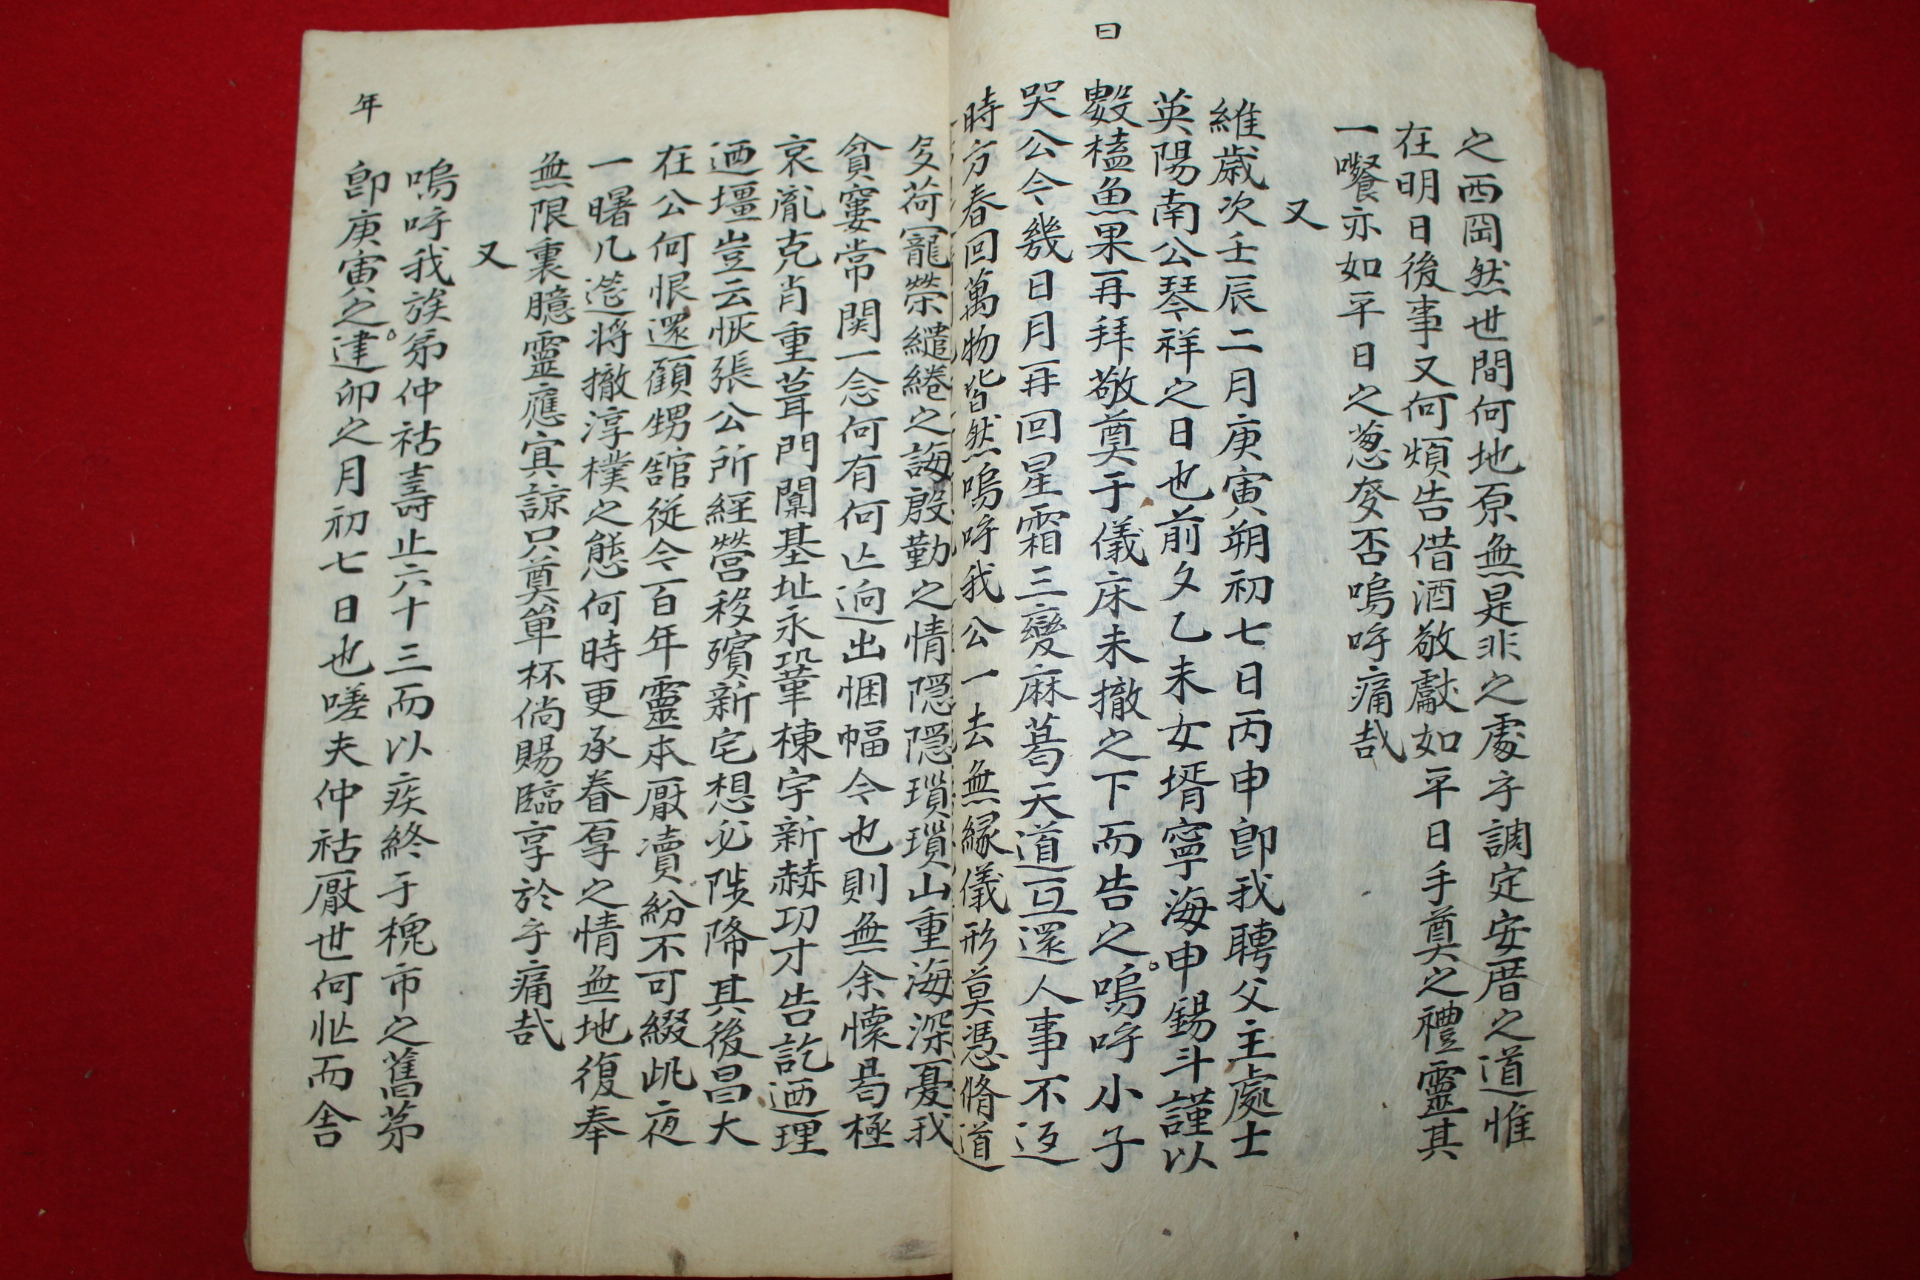 之西岡然世間何地原無是非之處乎調定安厝之道惟
在明日後事又何煩告借酒敬獻如平日手奠之禮靈其
一嚽亦如平日之葱癹否嗚呼痛哉
又
維歲次壬辰二月庚寅朔初七日丙申卽我聘父主處士
英陽南公琴祥之日也前夕乙未女壻寧海申錫斗謹以
數榼魚果再拜敬奠于儀床未撤之下而告之曰嗚呼小子
哭公今幾日月再回星霜三變麻葛天道亘還人事不返
時方春回萬物皆然嗚呼我公一去無緣儀形莫憑脩道
夊荷寵榮繾綣之誨殷勤之情隱隱瑣瑣山重海深憂我
貧窶常関一念何有何亾逈出悃愊今也則無余懷曷極
哀胤克肖重葺門闑基址永鞏棟宇新赫功才告訖迺理
迺壃豈云恢張公所經營移殯新宅想必陟降其後昌大
在公何恨還顧甥舘從今百年靈本厭瀆紛不可綴此夜
一曙几筵将撤淳樸之態何時更承眷厚之情無地復奉
無限裏臆靈應寘諒只奠單杯倘賜臨享於乎痛哉
又
嗚呼我族弟仲祜壽止六十三而以疾終于槐市之舊第
卽庚寅之年建卯之月初七日也嗟夫仲祜厭世何忙而舍